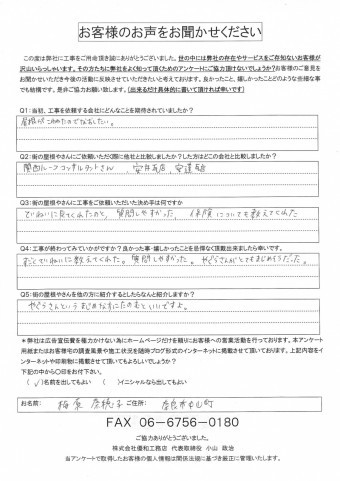 お客様のお声をお聞かせください
この度は弊社に工事をご用命頂き誠にありがとうございました。世の中には弊社の存在やサービスをご存知ないお客様が
沢山いらっしゃいます。その方たちに弊社をよく知って頂くためのアンケートにご協力頂けないでしょうか？お客様のご意見を
お聞かせいただき今後の活動に反映させていただきたいと考えております。良かったこと、嬉しかったことどのような些細な事
でも結構です。是非ご協力お願い致します。(出来るだけ具体的に書いて頂ければ幸いです)
Q1：当初、工事を依頼する会社にどんなことを期待されていましたか？
Q2：街の屋根やさんにご依頼いただく際に他社と比較しましたか？した方はどこの会社と比較しましたか
関西ルーフコンサルタントさん、
Q3：街の屋根やさんに工事をご依頼いただいた決め手は何ですか
ていねいに見てくれたのと、質問しやすかった、保険についても教えてくれた
Q4：工事が終わってみていかがですか？良かった事・嬉しかったことを忌憚なくご頂戴出来ましたら幸いです。
ていねいに教えてくれた。質問しやすかった。
Q5：街の屋根やさんを他の方に紹介するとしたらなんと紹介しますか？
＊弊社は広告宣伝費を極力かけない為にホームページだけを頼りにお客様への営業活動を行っております。本アンケート
用紙またはお客様宅の調査風景や施工状況を随時ブログ形式でのインターネットに掲載させて頂いております。上記内容をイ
ンターネットや印刷物に掲載させて頂いてもよろしいでしょうか？
下記の中から〇印をお付下さい。
(✓)名前を出してもよい　(　)イニシャルなら出してもよい
お名前：　ご住所：奈良市
FAX 06－6756－0180
ご協力ありがとうございました。
株式会社優和工務店　代表取締役　小山　政治
当アンケートで取得したお客様の個人情報は関係法規に基づき厳正に管理いたします。